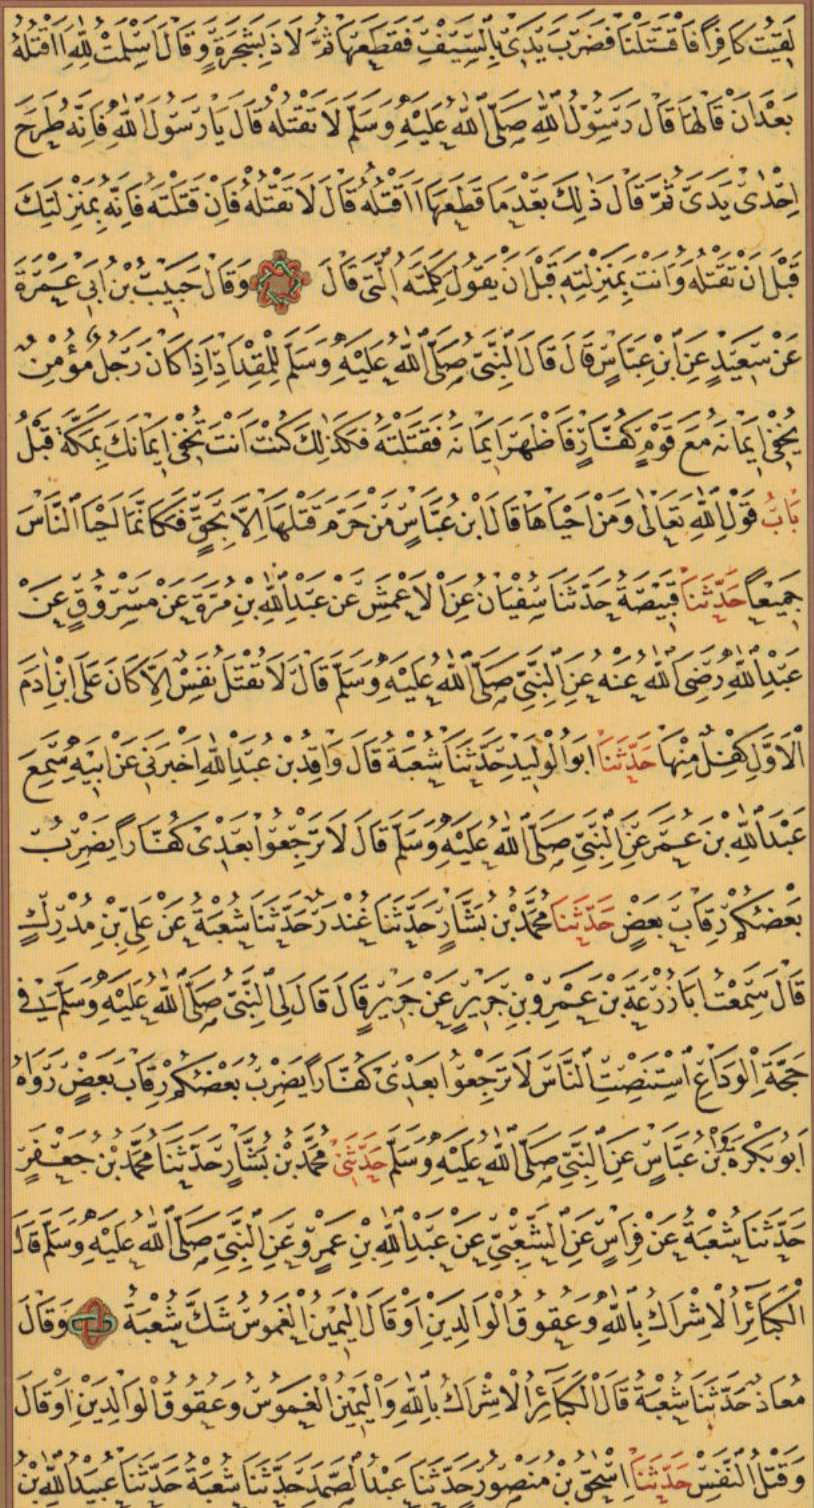 لَقِيتُ كَافِرًا فَاقْتَتَلْنَا فَضَرَبَ يَدِي بِالسَّيْفِ فَقَطَعَهَا ثُمَّ لَاذَ بِشَجَرَةٍ وَقَالَ اَسْلَمْتُ لِلّٰهِ اَاَقْتُلُهُ
بَعْدَ اَنْ قَالَهَا قَالَ رَسُولُ اللّٰهِ صَلَّى اللّٰهُ عَلَيْهِ وَسَلَّمَ لَا تَقْتُلْهُ قَالَ يَا رَسُولَ اللّٰهِ فَاِنَّهُ طَرَحَ
اِحْدٰى يَدَيَّ ثُمَّ قَالَ ذٰلِكَ بَعْدَ مَا قَطَعَهَا اَاَقْتُلُهُ قَالَ لَا تَقْتُلْهُ فَاِنْ قَتَلْتَهُ فَاِنَّهُ بِمَنْزِلَتِكَ
قَبْلَ اَنْ تَقْتُلَهُ وَاَنْتَ بِمَنْزِلَتِهِ قَبْلَ اَنْ يَقُولَ كَلِمَتَهُ الَّتِي قَالَ وَقَالَ حَبِيبُ بْنُ اَبِي عَمْرَةَ
عَنْ سَعِيدٍ عَنِ ابْنِ عَبَّاسٍ قَالَ قَالَ النَّبِيُّ صَلَّى اللّٰهُ عَلَيْهِ وَسَلَّمَ لِلْمِقْدَادِ اِذَا كَانَ رَجُلٌ مُؤْمِنٌ
يُخْفِي اِيمَانَهُ مَعَ قَوْمٍ كُفَّارٍ فَاَظْهَرَ اِيمَانَهُ فَقَتَلْتَهُ فَكَذٰلِكَ كُنْتَ اَنْتَ تُخْفِي اِيمَانَكَ بِمَكَّةَ قَبْلُ
بَابُ قَوْلِ اللّٰهِ تَعَالٰى وَمَنْ اَحْيَاهَا قَالَ ابْنُ عَبَّاسٍ مَنْ حَرَّمَ قَتْلَهَا اِلَّا بِحَقٍّ فَكَاَنَّمَا اَحْيَا النَّاسَ
جَمِيعًا حَدَّثَنَا قَبِيصَةُ حَدَّثَنَا سُفْيَانُ عَنِ الْاَعْمَشِ عَنْ عَبْدِ اللّٰهِ بْنِ مُرَّةَ عَنْ مَسْرُوقٍ عَنْ
عَبْدِ اللّٰهِ رَضِيَ اللّٰهُ عَنْهُ عَنِ النَّبِيِّ صَلَّى اللّٰهُ عَلَيْهِ وَسَلَّمَ قَالَ لَا تُقْتَلُ نَفْسٌ اِلَّا كَانَ عَلَى ابْنِ اٰدَمَ
الْاَوَّلِ كِفْلٌ مِنْهَا حَدَّثَنَا اَبُو الْوَلِيدِ حَدَّثَنَا شُعْبَةُ قَالَ وَاقِدُ بْنُ عَبْدِ اللّٰهِ اَخْبَرَنِي عَنْ اَبِيهِ سَمِعَ
عَبْدَ اللّٰهِ بْنَ عُمَرَ عَنِ النَّبِيِّ صَلَّى اللّٰهُ عَلَيْهِ وَسَلَّمَ قَالَ لَا تَرْجِعُوا بَعْدِي كُفَّارًا يَضْرِبُ
بَعْضُكُمْ رِقَابَ بَعْضٍ حَدَّثَنَا مُحَمَّدُ بْنُ بَشَّارٍ حَدَّثَنَا غُنْدَرٌ حَدَّثَنَا شُعْبَةُ عَنْ عَلِيِّ بْنِ مُدْرِكٍ
قَالَ سَمِعْتُ اَبَا زُرْعَةَ بْنَ عَمْرِو بْنِ جَرِيرٍ عَنْ جَرِيرٍ قَالَ قَالَ لِي النَّبِيُّ صَلَّى اللّٰهُ عَلَيْهِ وَسَلَّمَ فِي
حَجَّةِ الْوَدَاعِ اسْتَنْصِتِ النَّاسَ لَا تَرْجِعُوا بَعْدِي كُفَّارًا يَضْرِبُ بَعْضُكُمْ رِقَابَ بَعْضٍ رَوَاهُ
اَبُو بَكْرَةَ وَابْنُ عَبَّاسٍ عَنِ النَّبِيِّ صَلَّى اللّٰهُ عَلَيْهِ وَسَلَّمَ حَدَّثَنِي مُحَمَّدُ بْنُ بَشَّارٍ حَدَّثَنَا مُحَمَّدُ بْنُ جَعْفَرٍ
حَدَّثَنَا شُعْبَةُ عَنْ فِرَاسٍ عَنِ الشَّعْبِيِّ عَنْ عَبْدِ اللّٰهِ بْنِ عَمْرٍو عَنِ النَّبِيِّ صَلَّى اللّٰهُ عَلَيْهِ وَسَلَّمَ قَالَ
الْكَبَائِرُ الْاِشْرَاكُ بِاللّٰهِ وَعُقُوقُ الْوَالِدَيْنِ اَوْ قَالَ الْيَمِينُ الْغَمُوسُ شَكَّ شُعْبَةُ وَقَالَ
مُعَاذٌ حَدَّثَنَا شُعْبَةُ قَالَ الْكَبَائِرُ الْاِشْرَاكُ بِاللّٰهِ وَالْيَمِينُ الْغَمُوسُ وَعُقُوقُ الْوَالِدَيْنِ اَوْ قَالَ
وَقَتْلُ النَّفْسِ حَدَّثَنَا اِسْحٰقُ بْنُ مَنْصُورٍ حَدَّثَنَا عَبْدُ الصَّمَدِ حَدَّثَنَا شُعْبَةُ حَدَّثَنَا عُبَيْدُ اللّٰهِ بْنُ